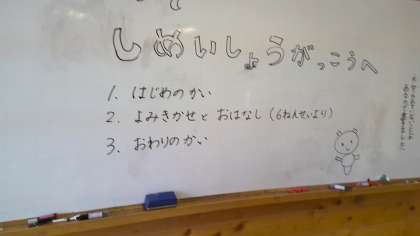 しめいしょうがっこうへ
1. はじめのかい
2. よみきかせと おはなし (6ねんせいより)
3. おわりのかい